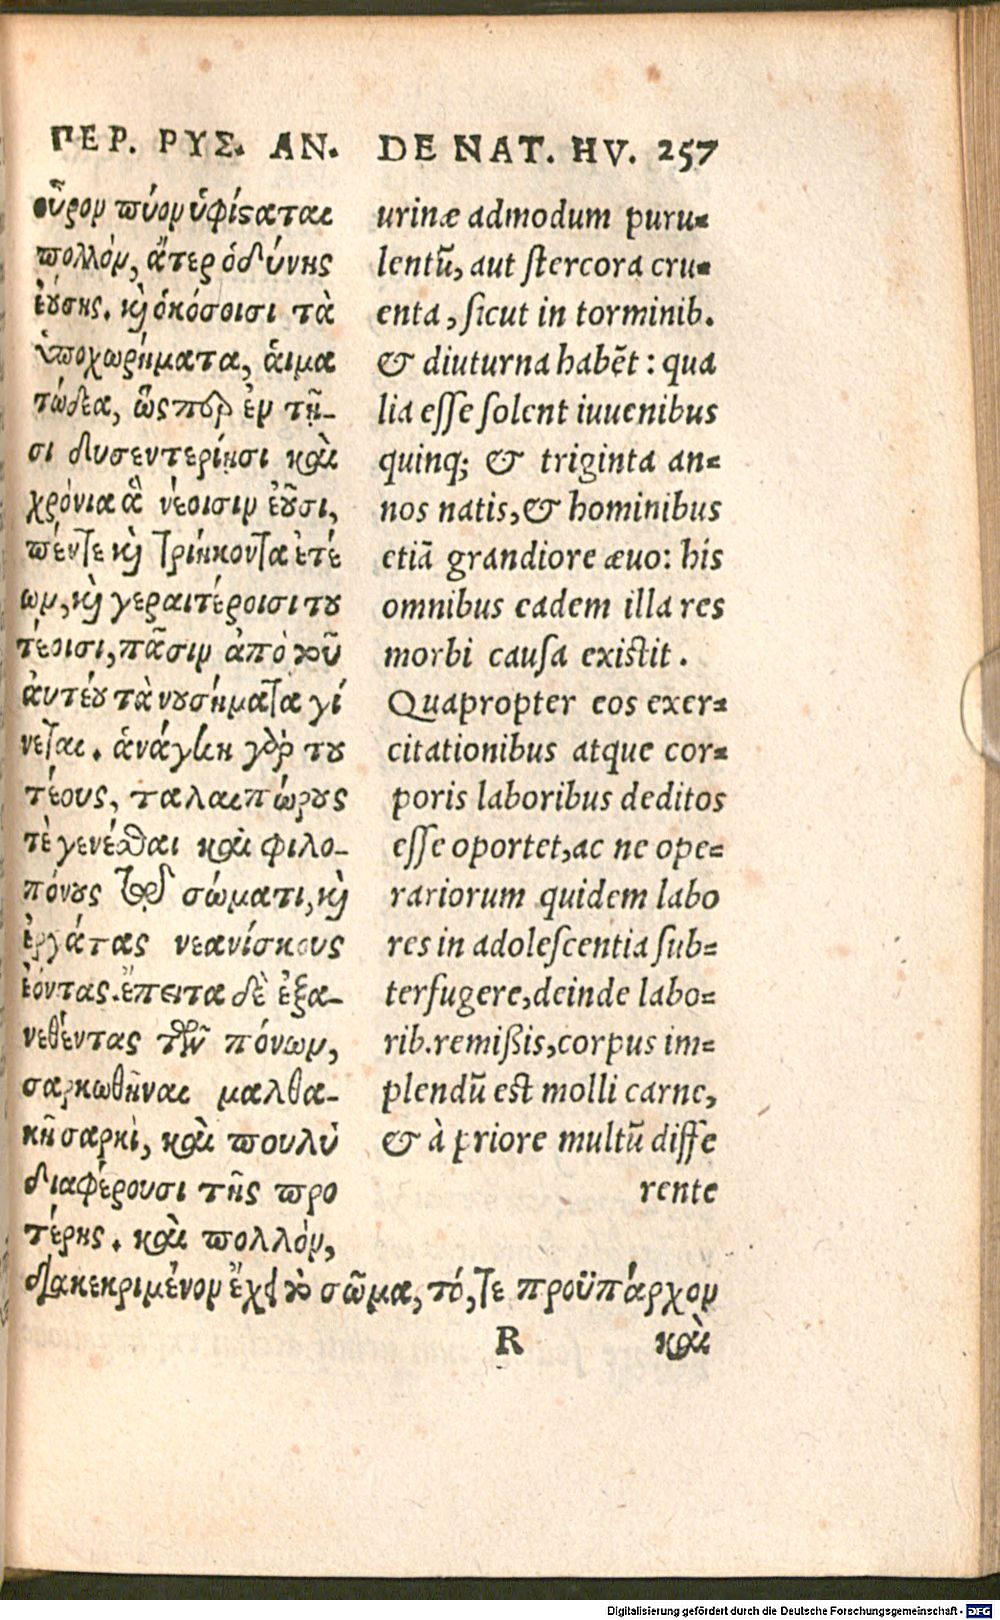 ΠΕΡ. ΡΥΣ. ΑΝ.
οὖρον πύον ὑφίςαται
πολλόν, ἄτερ ὀδύνης
ἐούσης. κỳ ὁκόσοισι τὰ
ὑποχωρήματα, αἱμα
τώδεα, ὥσπερ ἐν τῆ-
σι δυσεντερίησι καὶ
χρόνια ἃ νέοισιν ἐοῦσι,
πέντε κỳ τριήκοντα ἐτέ
ων, κỳ γεραιτέροισι του
τέοισι, πᾶσιν ἀπὸ τοῦ
ἀυτέου τὰ νουσήματα γί
νεται. ἀνάγκη γὰρ του
τέους, ταλαιπώρους
τὲ γενέσθαι καὶ φιλο-
πόνους τῷ σώματι, κỳ
ἐργάτας νεανίσκους
ἐόντας. ἔπειτα δὲ ἐξα-
νεθέντας τῶν πόνων,
σαρκωθῆναι μαλθα-
κῆ σαρκὶ, καὶ πουλὺ
διαφέρουσι τῆς προ
τέρης. καὶ πολλὸν,
διακεκριμένον ἔχει τὸ σῶμα, τό, τε προϋπάρχον
R καὶ
DE NAT. HV. 257
urinæ admodum puru-
lentũ, aut stercora cru-
enta, sicut in torminib.
& diuturna habẽt: qua
lia esse solent iuuenibus
quinq; & triginta an-
nos natis, & hominibus
etiã grandiore æuo: his
omnibus eadem illa res
morbi causa existit.
Quapropter eos exer-
citationibus atque cor-
poris laboribus deditos
esse oportet, ac ne ope-
rariorum quidem labo
res in adolescentia sub-
terfugere, deinde labo-
rib. remißis, corpus im-
plendũ est molli carne,
& à priore multũ diffe
rente
Digitalisierung gefördert durch die Deutsche Forschungsgemeinschaft - DFG